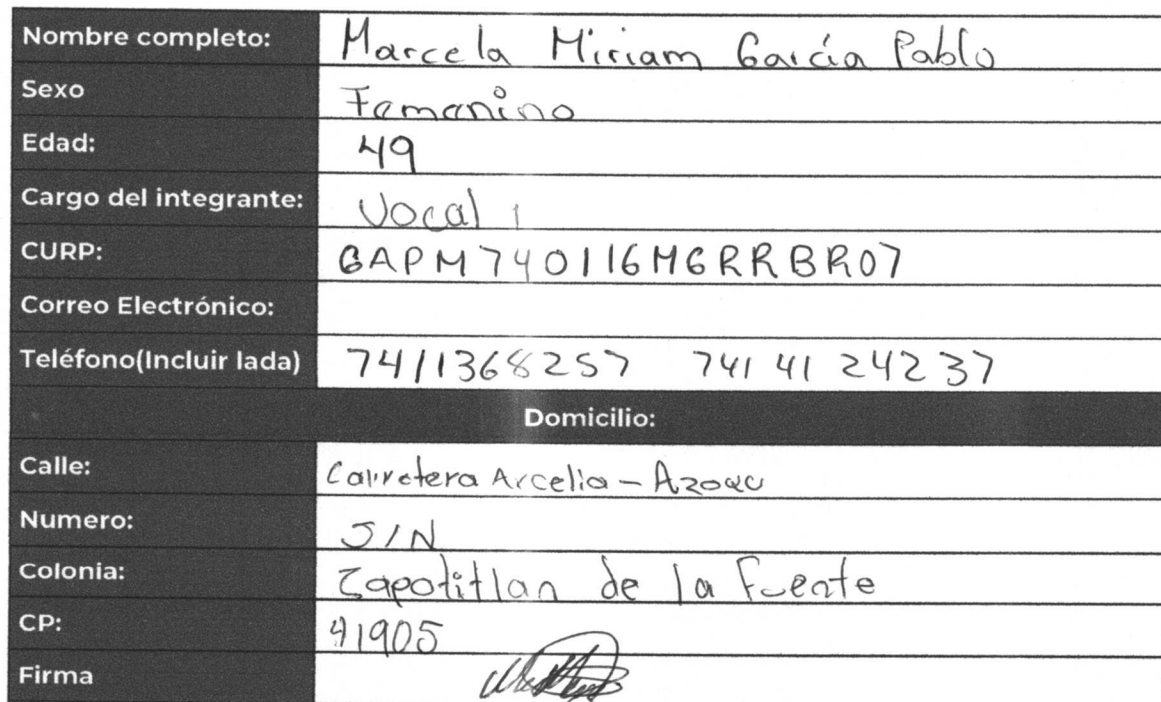 Nombre completo: Marcela Miriam García Pablo
Sexo Femenino
Edad: 49
Cargo del integrante: Vocal 1
CURP: GAPM740116MGRRBR07
Correo Electrónico:
Teléfono(Incluir lada) 7411368257 741 41 242 37
Domicilio:
Calle: Carretera Arcelia - Azoyu
Numero: S/N
Colonia: Zapotitlan de la Fuente
CP: 41905
Firma